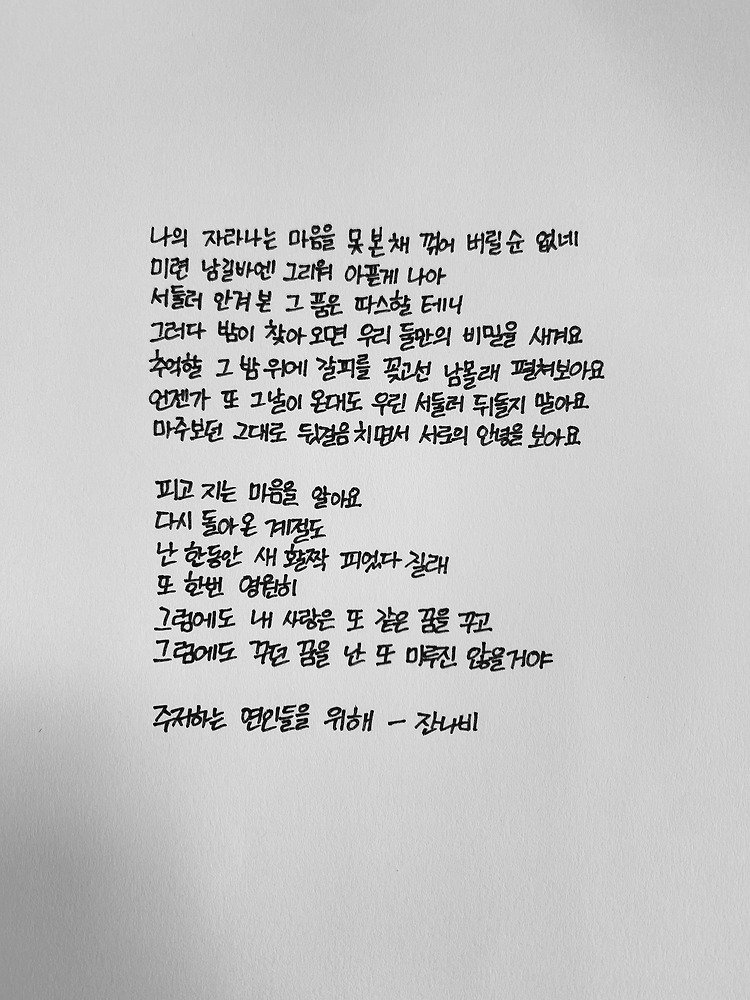 나의 자라나는 마음을 못 본 채 꺾어 버릴 순 없네
미련 남길바엔 그리워 아픈게 나아
서둘러 안겨 본 그 품은 따스할 테니
그러다 밤이 찾아 오면 우리 둘만의 비밀을 새겨요
추억할 그 밤 위에 갈피를 꽂고선 남몰래 펼쳐보아요
언젠가 또 그날이 온대도 우린 서둘러 뒤돌지 말아요
마주보던 그대로 뒷걸음 치면서 서로의 안녕을 보아요

피고 지는 마음을 알아요
다시 돌아온 계절도
난 한동안 새 활짝 피었다 질래
또 한번 영원히
그럼에도 내 사랑은 또 같은 꿈을 꾸고
그럼에도 꾸던 꿈을 난 또 미루진 않을거야

주저하는 연인들을 위해 – 잔나비